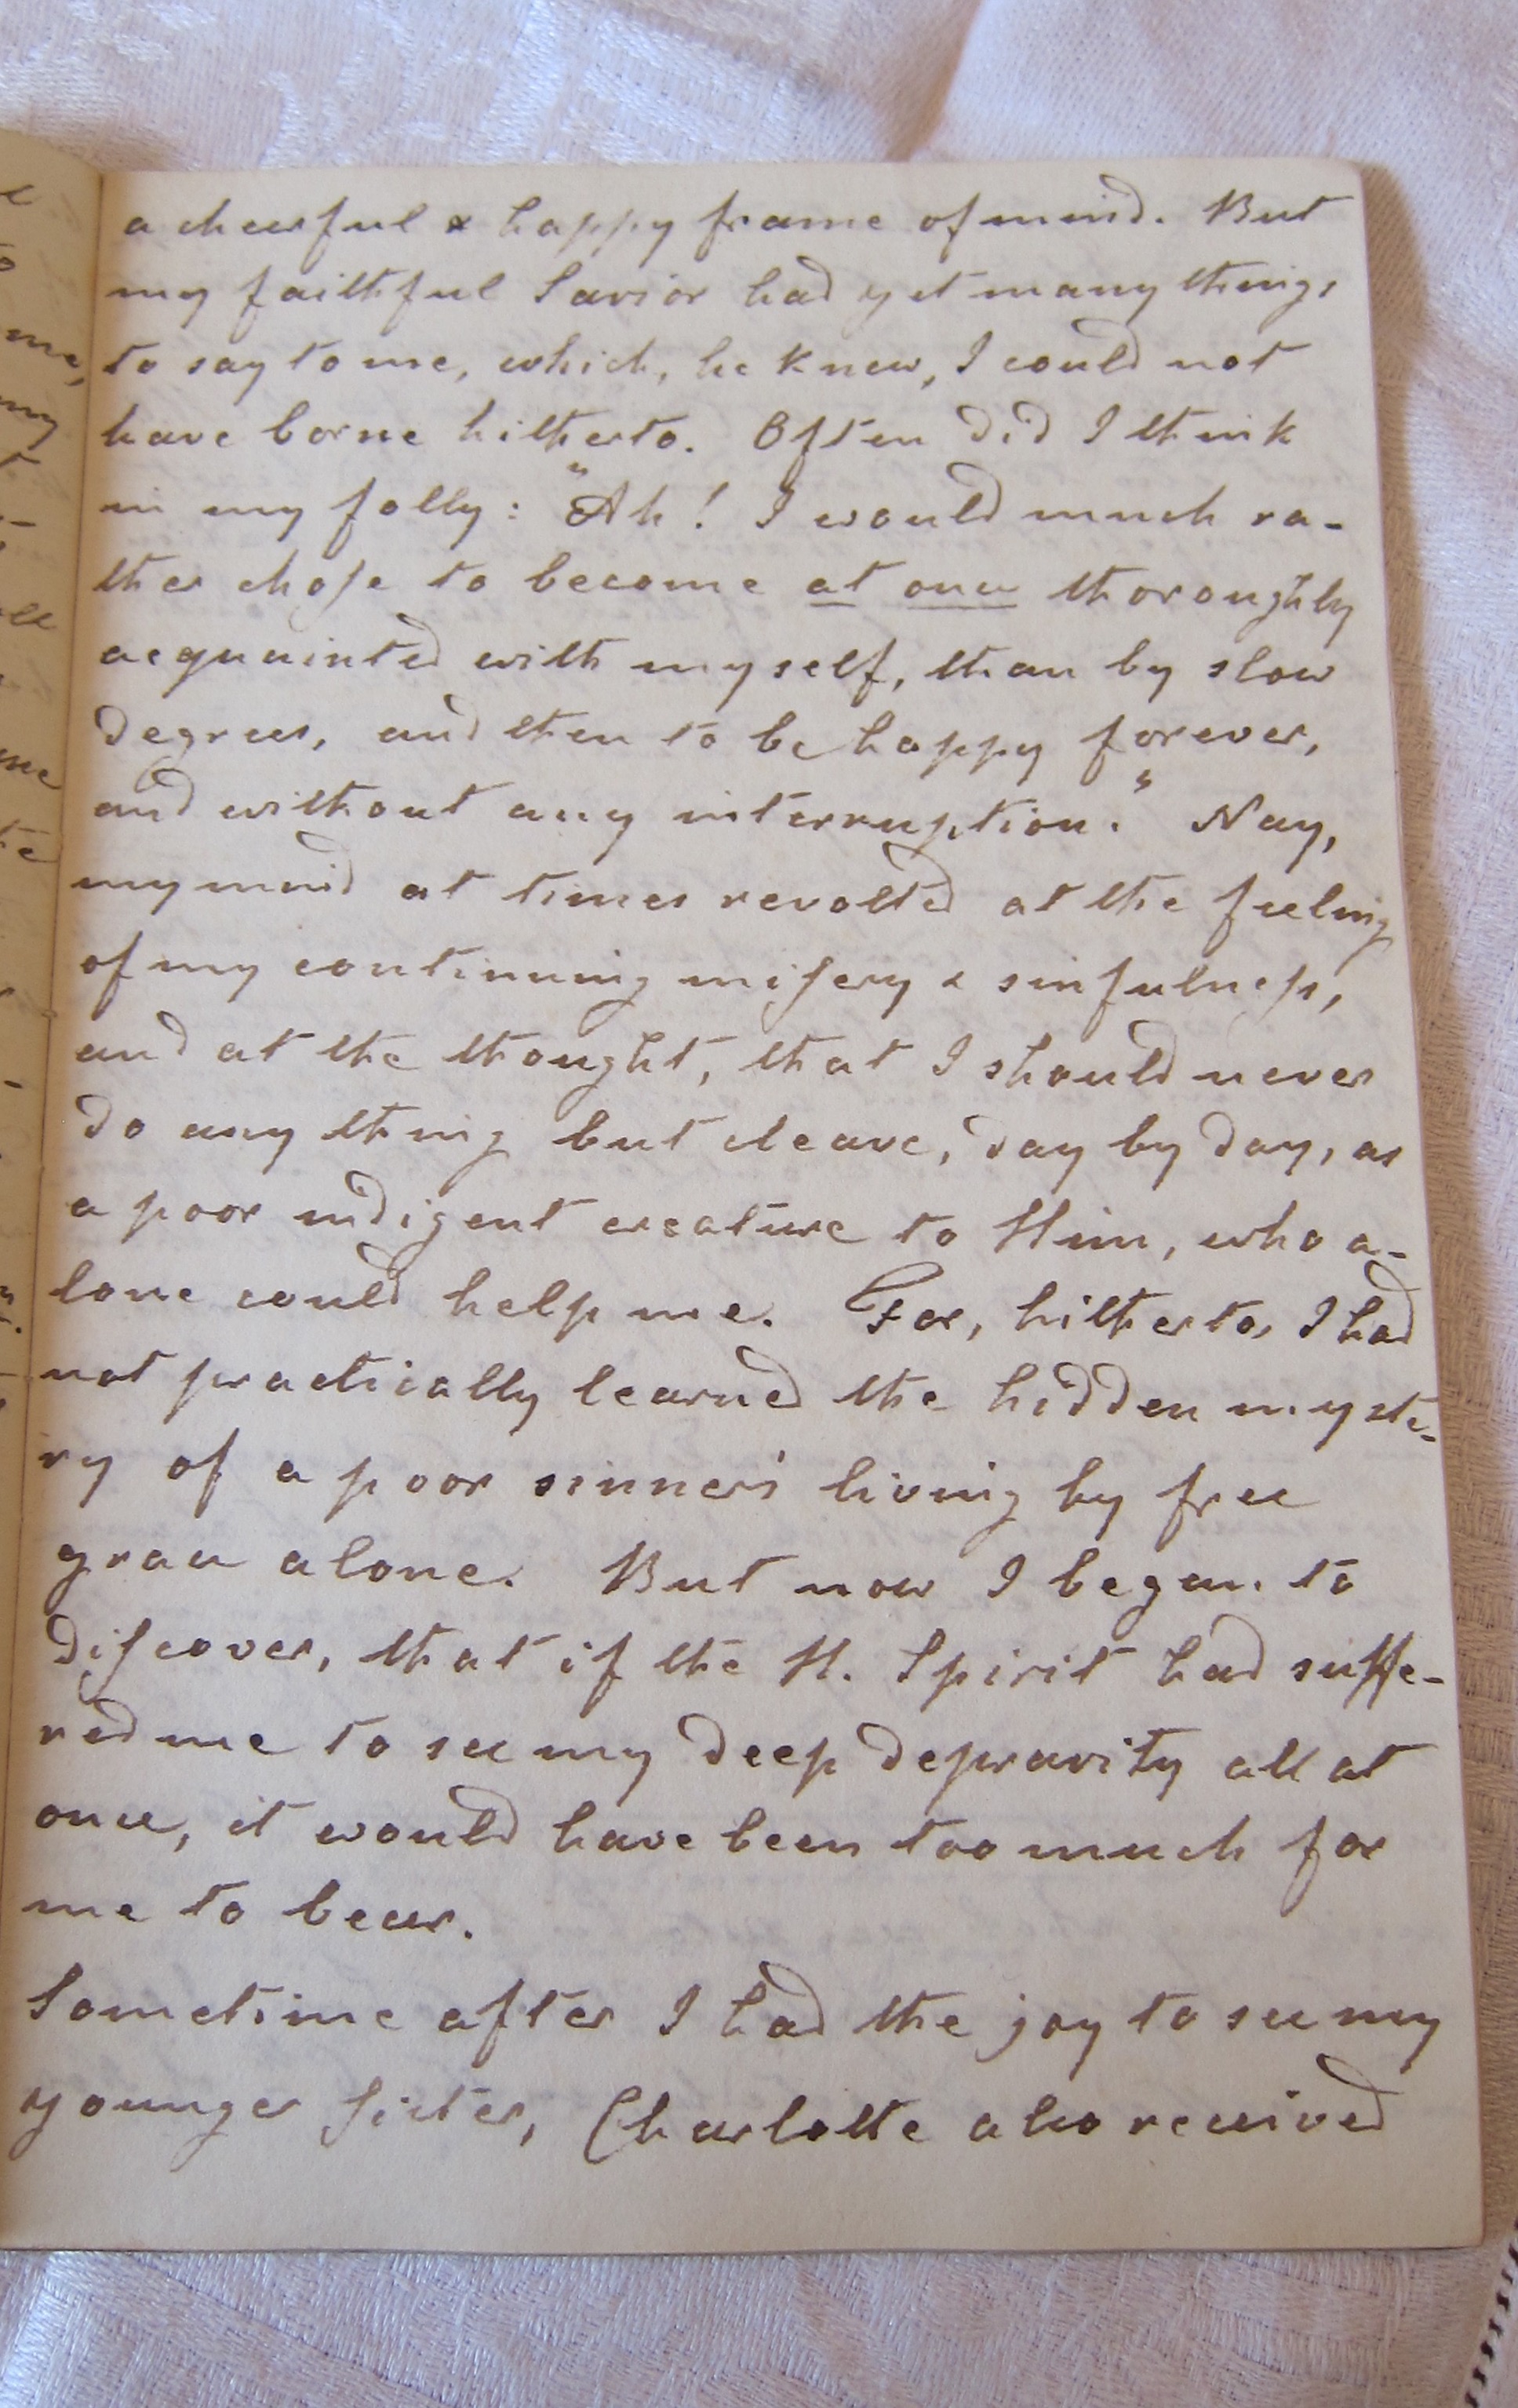 a cheerful & happy frame of mind. But
my faithful Savior had yet many things
to say to me, which, he knew, I could not
have borne hitherto. Often did I think
in my folly: "Ah! I would much ra-
ther choſe to become at once thoroughly
acquainted with myself, than by slow
degrees, and then to be happy forever,
and without any interruption." Nay,
my mind at times revolted at the feeling
of my continuing miſery & sinfulneſs,
and at the thought, that I should never
do any thing but cleave, day by day, as
a poor indigent creature to Him, who a-
lone could help me. For, hitherto, I had
not practically learned the hidden myste-
ry of a poor sinner's living by free
grace alone. But now I began to
diſcover, that if the H. Spirit had suffe-
red me to see my deep depravity all at
once, it would have been too much for
me to bear.
Sometime after I had the joy to see my
younger ſister, Charlotte also received
me,
my
me